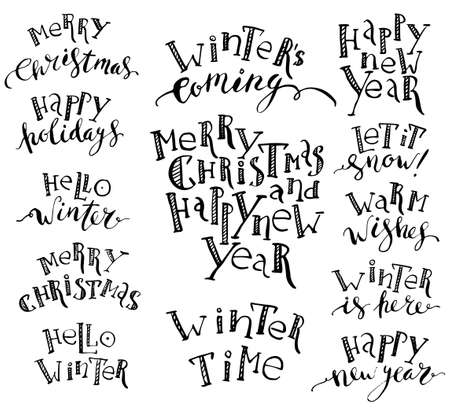 MERRY
Christmas
HAPPY
holidays
HELLO
Winter
MERRY
CHRISTMAS
HELLO
WINTER
WINTER's
coming
MERRY
CHRISTMAS
and
HAPPY NEW
YEAR
WINTER
TIME
HAPPY
NEW
YEAR
LET IT
snow!
WARM
wishes
WINTER
is here
HAPPY
new year